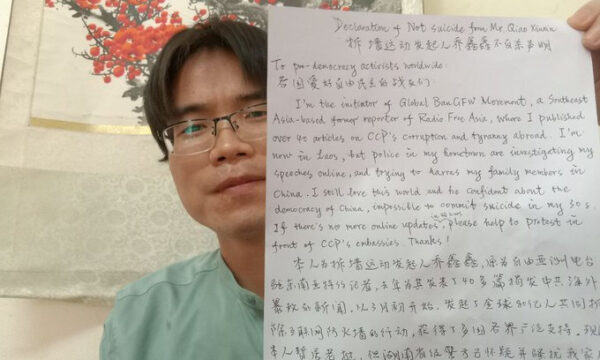 Declaration of Not suicide from Mr. Qiao Xinxin
拆墙运动发起人乔鑫鑫不自杀声明
To pro-democracy activists worldwide:
各国爱好自由民主的战友们:
I'm the initiator of Global BanGFW Movement, a Southeast
Asia-based former reporter of Radio Free Asia, where I published
over 40 articles on CCP's corruption and tyranny abroad. I'm
now in Laos, but police in my hometown are investigating my
speeches online, and trying to harras my family members in
China. I still love this world and be confident about the
democracy of China, impossible to commit suicide in my 30s.
If there's no more online updates, please help to protest in
front of CCP's embassies. Thanks!
本人为拆墙运动发起人乔鑫鑫,原为自由亚洲电台
驻东南亚特约记者,去年为其发表了40多篇揭发中共海外
暴政的新闻,从3月初开始,发起了全球数亿人共同拆
除互联网防火墙的行动,获得了多国各界广泛支持。现
本人暂居老挝,但湖南省级警方已怀疑并骚扰我家